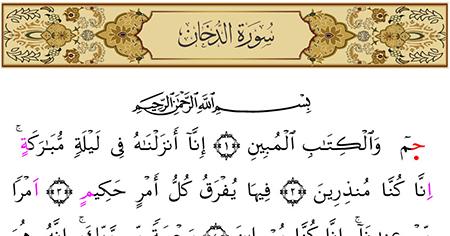 سُورَةُ الدُّخَانِ
بِسْمِ ٱللَّهِ ٱلرَّحْمَٰنِ ٱلرَّحِيمِ
جمٓ وَٱلْكِتَٰبِ ٱلْمُبِينِ ﴿١﴾ إِنَّآ أَنزَلْنَٰهُ فِى لَيْلَةٍ مُّبَٰرَكَةٍ ۚ
اِنَّا كُنَّا مُنذِرِينَ ﴿٢﴾ فِيهَا يُفْرَقُ كُلُّ أَمْرٍ حَكِيمٍ ﴿٣﴾ اَمْرًا
إِنَّا كُنَّا